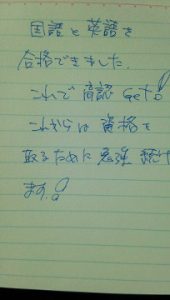 国語と英語を
合格できました。
これで高認Get!
これからは資格を
取るために勉強続け
ます。!